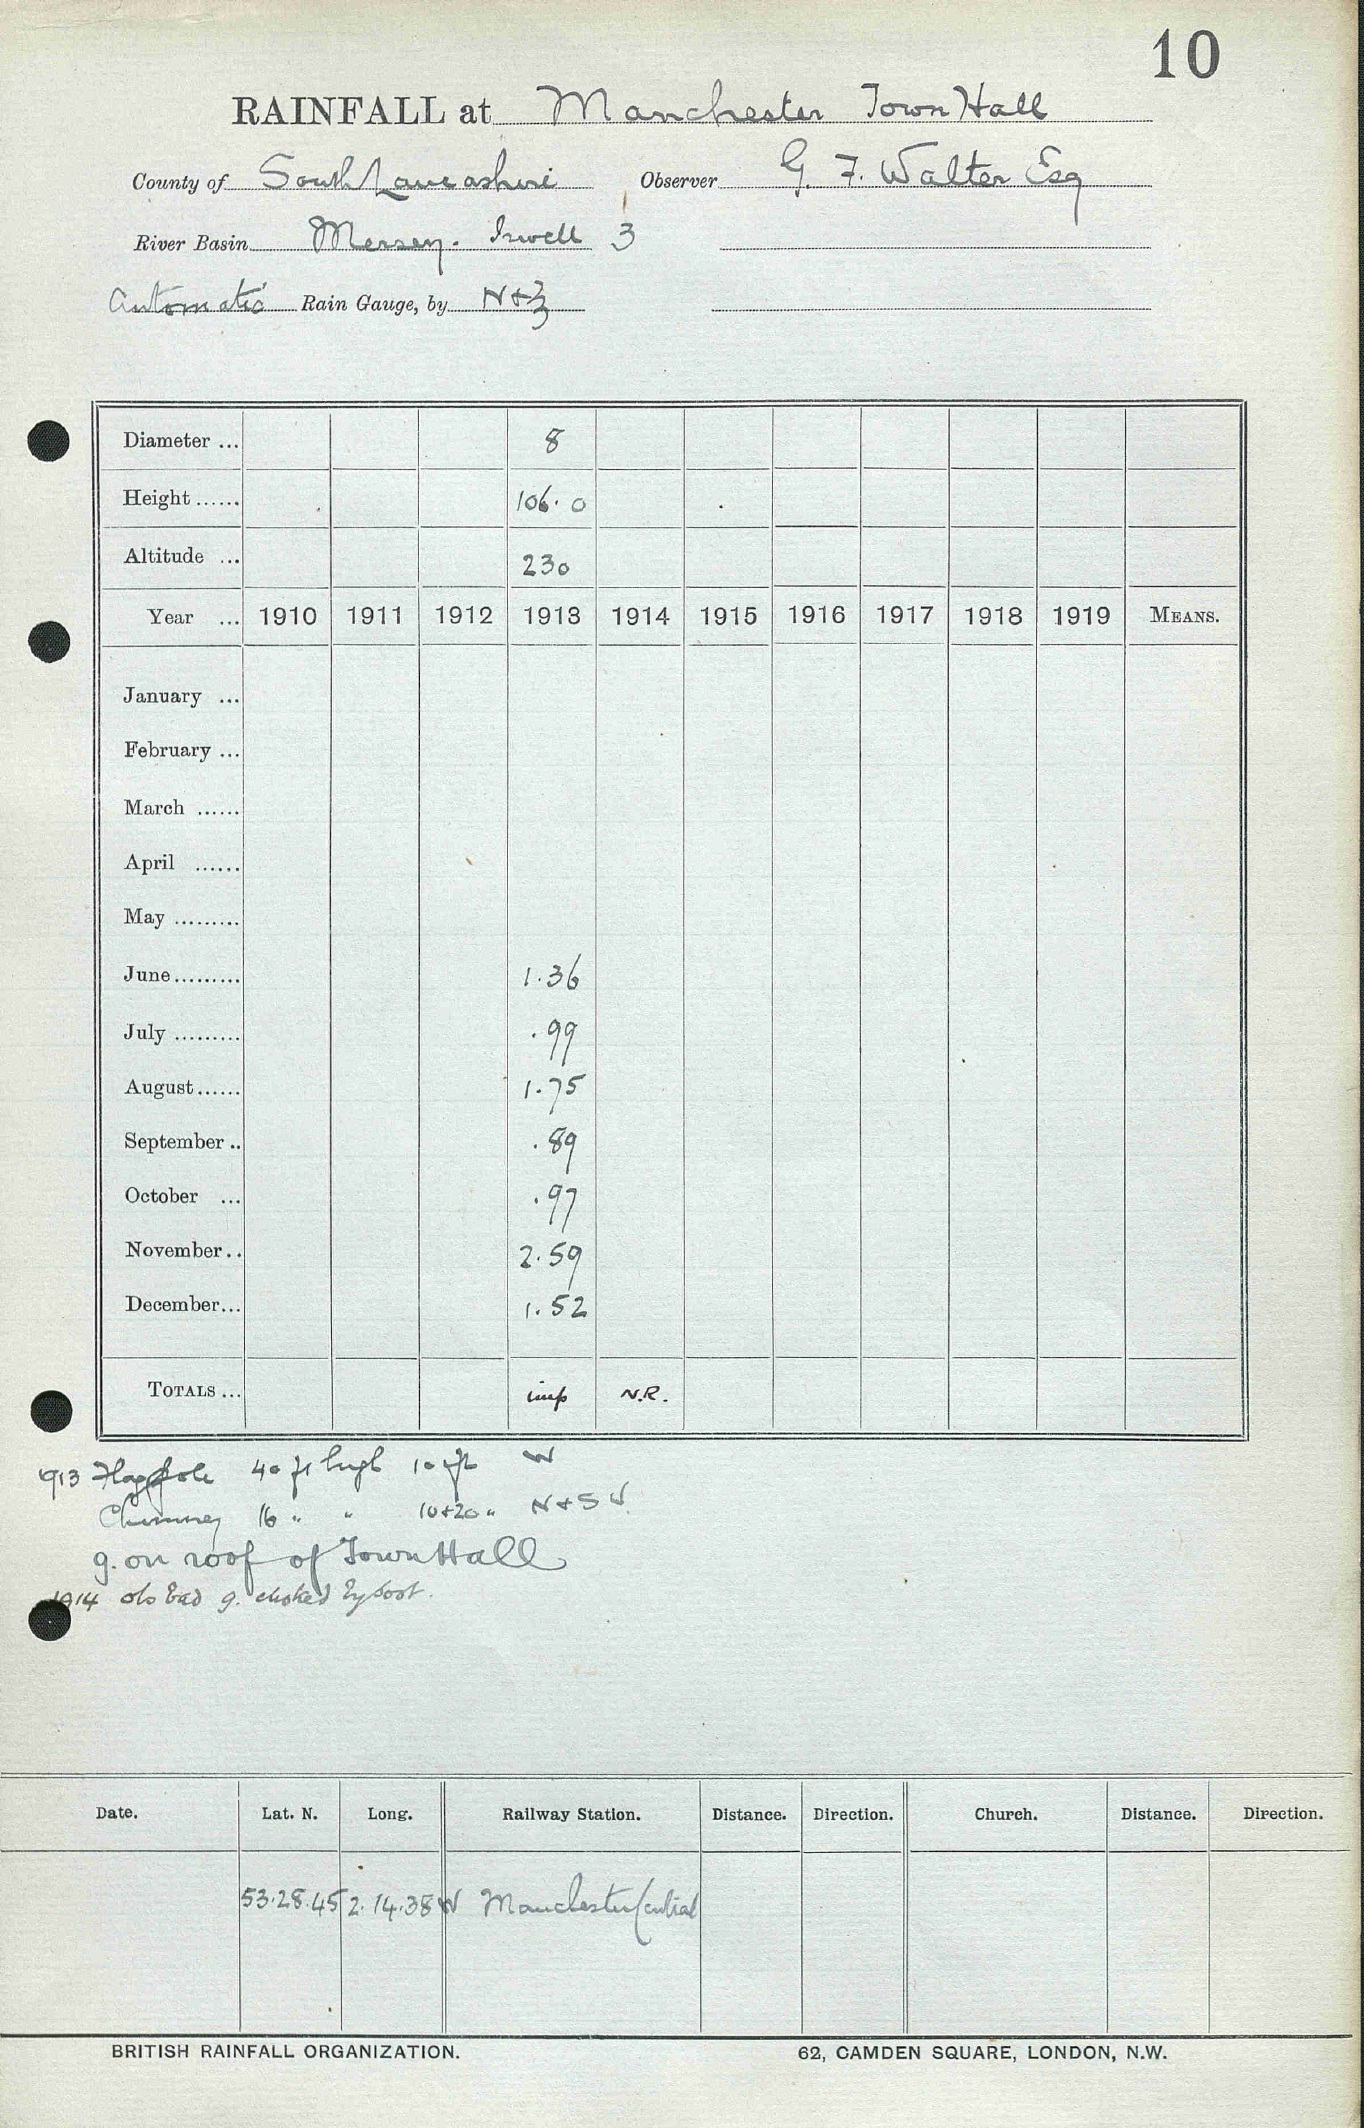 10
RAINFALL at Manchester Town Hall
County of South Lancashire Observer G. F. Walter Esq
River Basin Mersey. Irwell 3
Automatic Rain Gauge, by N & Z
Diameter ... 8
Height ...... 106.0
Altitude ... 230
Year ... 1910 1911 1912 1913 1914 1915 1916 1917 1918 1919 MEANS.
January ...
February ...
March ......
April ......
May .........
June ......... 1.36
July ......... .99
August ...... 1.75
September .. .89
October ... .97
November .. 2.59
December ... 1.52
TOTALS ... imp N.R.
1913 Flagpole 40 ft high 10 ft W
Chimney 16 " " 10+20 " N + SW
g. on roof of Town Hall
1914 obs bad g. choked by soot.
Date. Lat. N. Long. Railway Station. Distance. Direction. Church. Distance. Direction.
53.28.45 2.14.38 W Manchester Central
BRITISH RAINFALL ORGANIZATION. 62, CAMDEN SQUARE, LONDON, N.W.